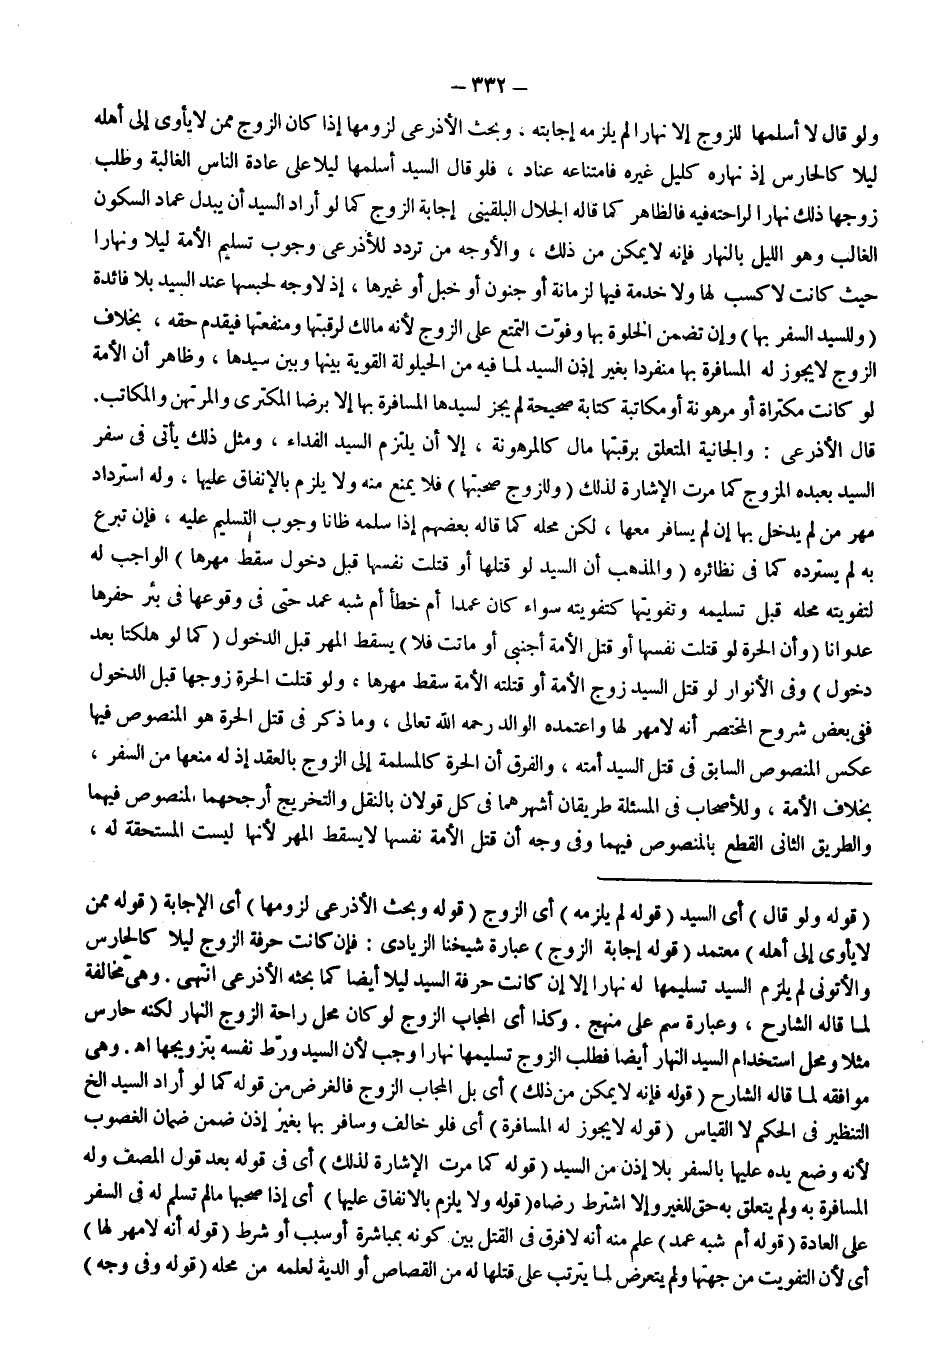 – ٣٣٢ –
ولو قال لا أسلمها للزوج إلا نهارا لم يلزمه إجابته ، وبحث الأذرعى لزومها إذا كان الزوج ممن لا يأوى إلى أهله
ليلا كالحارس إذ نهاره كليل غيره فامتناعه عناد ، فلو قال السيد أسلمها ليلا على عادة الناس الغالبة وطلب
زوجها ذلك نهارا لراحته فيه فالظاهر كما قاله الجلال البلقينى إجابة الزوج كما لو أراد السيد أن يبدل عماد السكون
الغالب وهو الليل بالنهار فإنه لا يمكن من ذلك ، والأوجه من تردد للأذرعى وجوب تسليم الأمة ليلا ونهارا
حيث كانت لا كسب لها ولا خدمة فيها لزمانة أو جنون أو خبل أو غيرها ، إذ لا وجه لحبسها عند السيد بلا فائدة
( وللسيد السفر بها ) وإن تضمن الخلوة بها وفوّت التمتع على الزوج لأنه مالك لرقبتها ومنفعتها فيقدم حقه ، بخلاف
الزوج لا يجوز له المسافرة بها منفردا بغير إذن السيد لما فيه من الحيلولة القوية بينها وبين سيدها ، وظاهر أن الأمة
لو كانت مكتراة أو مرهونة أو مكاتبة كتابة صحيحة لم يجز لسيدها المسافرة بها إلا برضا المكترى والمرتهن والمكاتب.
قال الأذرعى : والجانية المتعلق برقبتها مال كالمرهونة ، إلا أن يلتزم السيد الفداء ، ومثل ذلك يأتى فى سفر
السيد بعبده المزوج كما مرت الإشارة لذلك ( وللزوج صحبتها ) فلا يمنع منه ولا يلزم بالإنفاق عليها ، وله استرداد
مهر من لم يدخل بها إن لم يسافر معها ، لكن محله كما قاله بعضهم إذا سلمه ظانا وجوب التسليم عليه ، فإن تبرع
به لم يسترده كما فى نظائره ( والمذهب أن السيد لو قتلها أو قتلت نفسها قبل دخول سقط مهرها ) الواجب له
لتفويته محله قبل تسليمه وتفويتها كتفويته سواء كان عمدا أم خطأ أم شبه عمد حتى فى وقوعها فى بئر حفرها
عدوانا ( وأن الحرة لو قتلت نفسها أو قتل الأمة أجنبى أو ماتت فلا ) يسقط المهر قبل الدخول ( كما لو هلكتا بعد
دخول ) وفى الأنوار لو قتل السيد زوج الأمة أو قتلته الأمة سقط مهرها ، ولو قتلت الحرة زوجها قبل الدخول
ففى بعض شروح المختصر أنه لا مهر لها واعتمده الوالد رحمه الله تعالى ، وما ذكر فى قتل الحرة هو المنصوص فيها
عكس المنصوص السابق فى قتل السيد أمته ، والفرق أن الحرة كالمسلمة إلى الزوج بالعقد إذ له منعها من السفر ،
بخلاف الأمة ، وللأصحاب فى المسئلة طريقان أشهرهما فى كل قولان بالنقل والتخريج أرجحهما المنصوص فيهما
والطريق الثانى القطع بالمنصوص فيهما وفى وجه أن قتل الأمة نفسها لا يسقط المهر لأنها ليست المستحقة له ،
( قوله ولو قال ) أى السيد ( قوله لم يلزمه ) أى الزوج ( قوله وبحث الأذرعى لزومها ) أى الإجابة ( قوله ممن
لا يأوى إلى أهله ) معتمد ( قوله إجابة الزوج ) عبارة شيخنا الزيادى : فإن كانت حرفة الزوج ليلا كالحارس
والأتونى لم يلزم السيد تسليمها له نهارا إلا إن كانت حرفة السيد ليلا أيضا كما بحثه الأذرعى انتهى . وهى مخالفة
لما قاله الشارح ، وعبارة سم على منهج . وكذا أى المجاب الزوج لو كان محل راحة الزوج النهار لكنه حارس
مثلا ومحل استخدام السيد النهار أيضا فطلب الزوج تسليمها نهارا وجب لأن السيد ورّط نفسه بتزويجها اه . وهى
موافقه لما قاله الشارح ( قوله فإنه لا يمكن من ذلك ) أى بل المجاب الزوج فالغرض من قوله كما لو أراد السيد الخ
التنظير فى الحكم لا القياس ( قوله لا يجوز له المسافرة ) أى فلو خالف وسافر بها بغير إذن ضمن ضمان الغصوب
لأنه وضع يده عليها بالسفر بلا إذن من السيد ( قوله كما مرت الإشارة لذلك ) أى فى قوله بعد قول المصف وله
المسافرة به ولم يتعلق به حق للغير وإلا اشترط رضاه ( قوله ولا يلزم بالانفاق عليها ) أى إذا صحبها مالم تسلم له فى السفر
على العادة ( قوله أم شبه عمد ) علم منه أنه لا فرق فى القتل بين كونه بمباشرة أو سبب أو شرط ( قوله أنه لا مهر لها )
أى لأن التفويت من جهتها ولم يتعرض لما يترتب على قتلها له من القصاص أو الدية لعلمه من محله ( قوله وفى وجه )